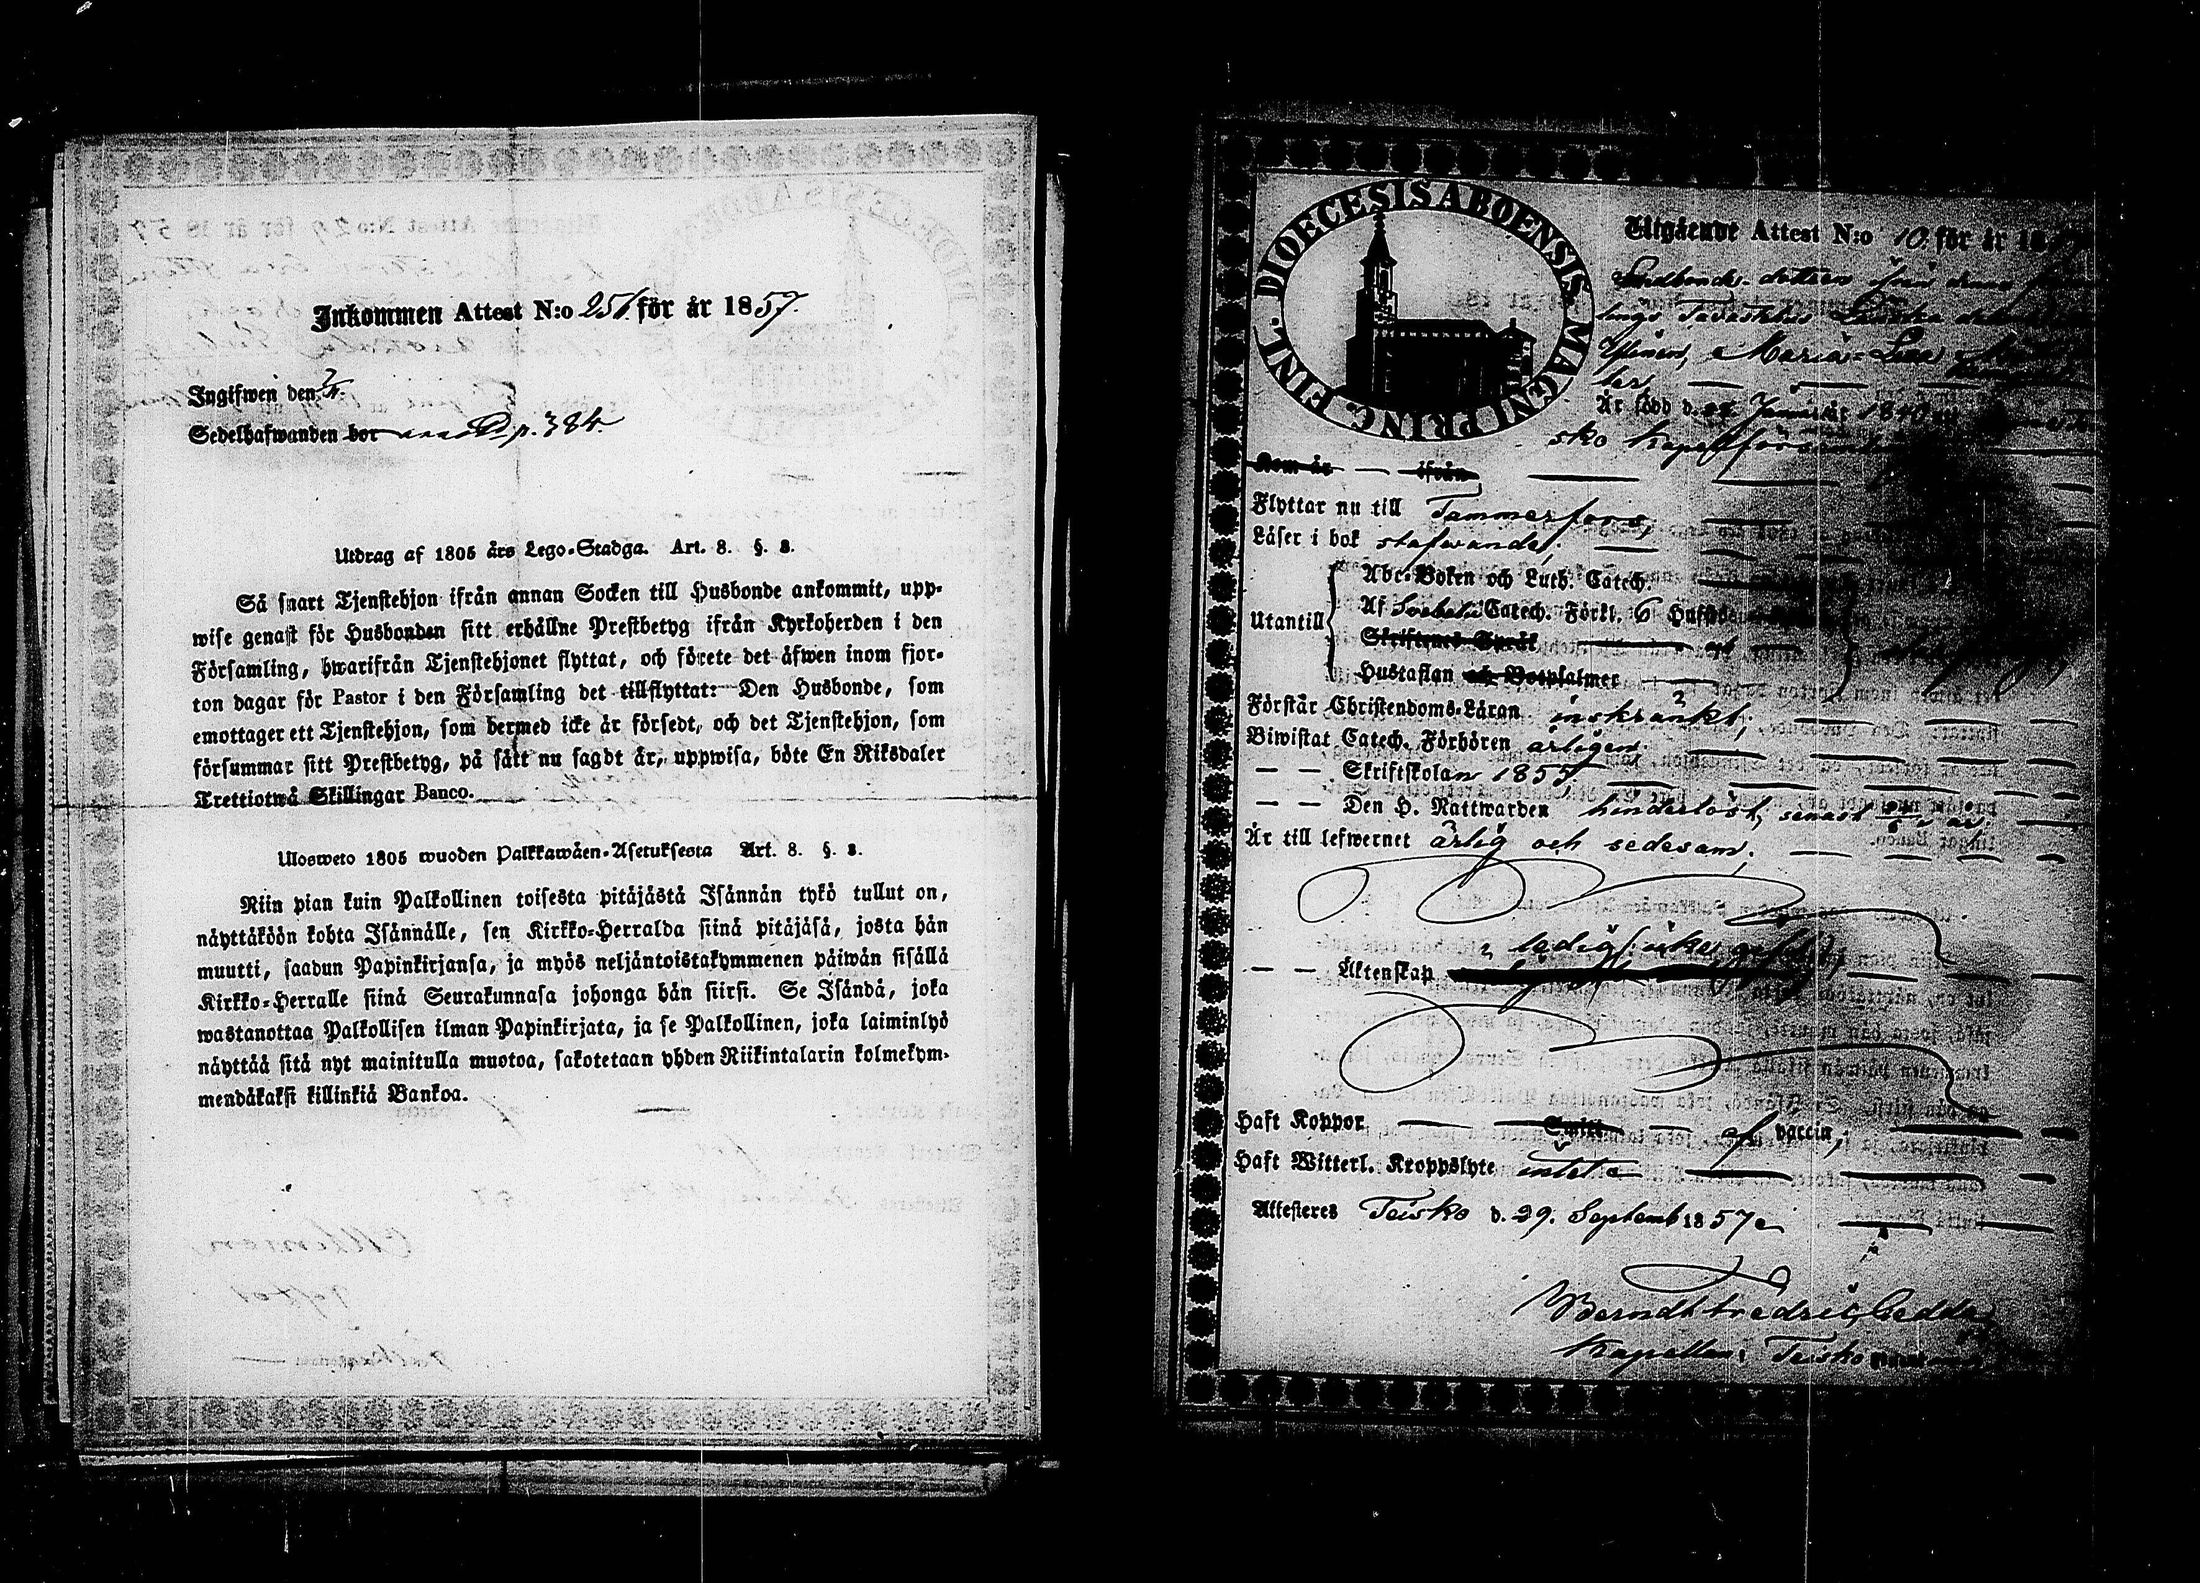 Inkommen Attest N:o 251. för år 1857.
Ingifwen den
Sedelhafwanden bor p. 384.
Utdrag af 1805 års Lego-Stadga. Art. 8. §. 3.
Så snart Tjenstehjon ifrån annan Socken till Husbonde ankommit, upp-
wise genast för Husbonden sitt erhållne Prestbetyg ifrån Kyrkoherden i den
Församling, hwarifrån Tjenstehjonet flyttat, och förete det äfwen inom fjor-
ton dagar för Pastor i den Församling det tillflyttat: Den Husbonde, som
emottager ett Tjenstehjon, som dermed icke är försedt, och det Tjenstehjon, som
försummar sitt Prestbetyg, på sätt nu sagdt är, uppwisa, böte En Riksdaler
Trettiotwå Skillingar Banco.
Ulosweto 1805 wuoden Palkkawäen-Asetuksesta Art. 8. §. 3.
Niin pian kuin Palkollinen toisesta pitäjästä Isännän tykö tullut on,
näyttäköön kohta Isännälle, sen Kirkko-Herralda siinä pitäjäsä, josta hän
muutti, saadun Papinkirjansa, ja myös neljäntoistakymmenen päiwän sisällä
Kirkko-Herralle siinä Seurakunnasa johonga hän siirsi. Se Isändä, joka
wastanottaa Palkollisen ilman Papinkirjata, ja se Palkollinen, joka laiminlyö
näyttää sitä nyt mainitulla muotoa, sakotetaan yhden Riikintalarin kolmekym-
mendäkaksi killinkiä Bankoa.
DIOECESIS ABOENSIS MAGNI PRINC. FINL.
Utgående Attest N:o 10. för år 18
dottren från denna
Maria Lisa
Är född d. Januarii 1840
sko kapellförsamling
Kom år ifrån
Flyttar nu till Tammerfors,
Läser i bok stafwande,
Utantill
Abc-Boken och Luth. Catech.
Af Svebelii Catech. Förkl. 6 Hufst
Skriftenes Språk
Hustaflan och Botpsalmer
Förstår Christendoms-Läran inskränkt;
Biwistat Catech. Förhören årligen
— — Skriftskolan 1855,
— — Den H. Nattwarden hinderlöst, senast
Är till lefwernet ärlig och sedesam;
— — Äktenskap ledig
Haft Koppor Smitt af vaccin,
Haft Witterl. Kroppslyte intet
Attesteres Teisko d. 29. Septemb 1857
Berndt Fredric Gedda
Kapellan i Teisko